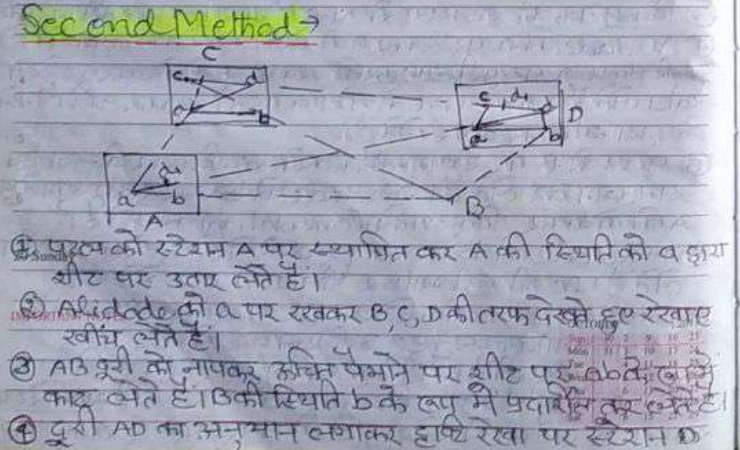 Second Method →
C
c d
a b
c d₁ d
a b
D
d₁
a b
A
B
① पटल को स्टेशन A पर स्थापित कर A की स्थिति को a द्वारा
शीट पर उतार लेते है।
② Alidade को a पर रखकर B, C, D की तरफ देखते हुए रेखाए
खींच लेते है।
③ AB दूरी को नापकर उचित पैमाने पर शीट पर ab के रूप मे
काट लेते है। B की स्थिति b के रूप मे प्रदर्शित कर लेते है।
④ दूरी AD का अनुमान लगाकर दृष्टि रेखा पर स्टेशन D